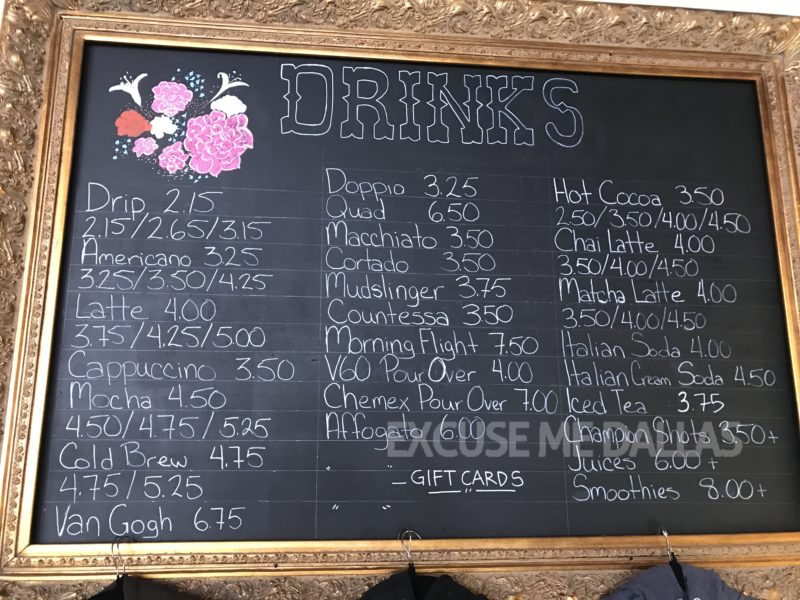 DRINKS
Drip 2.15
2.15/2.65/3.15
Americano 3.25
3.25/3.50/4.25
Latte 4.00
3.75/4.25/5.00
Cappuccino 3.50
Mocha 4.50
4.50/4.75/5.25
Cold Brew 4.75
4.75/5.25
Van Gogh 6.75
Doppio 3.25
Quad 6.50
Macchiato 3.50
Cortado 3.50
Mudslinger 3.75
Countessa 3.50
Morning Flight 7.50
V60 Pour Over 4.00
Chemex Pour Over 7.00
Affogato 6.00
" "
- GIFT CARDS
" " "
Hot Cocoa 3.50
2.50/3.50/4.00/4.50
Chai Latte 4.00
3.50/4.00/4.50
Matcha Latte 4.00
3.50/4.00/4.50
Italian Soda 4.00
Italian Cream Soda 4.50
Iced Tea 3.75
Champion Shots 3.50+
Juices 6.00+
Smoothies 8.00+
EXCUSE ME DALLAS